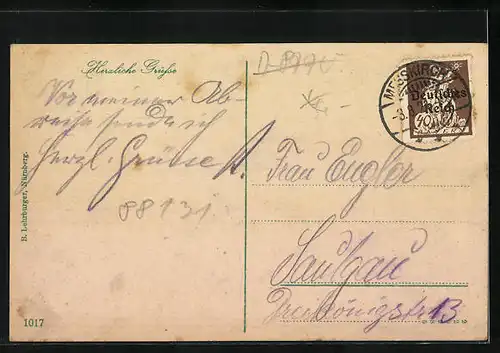 Herzliche Grüße
Vor meiner Ab-
reise sende ich
Herzl. Grüsse
88131
B. Lehrburger, Nürnberg.
1017
MESSKIRCH
Deutsches
Reich
40
BAYERN
Frau Engler
Saulgau
Dreikönigstr 13